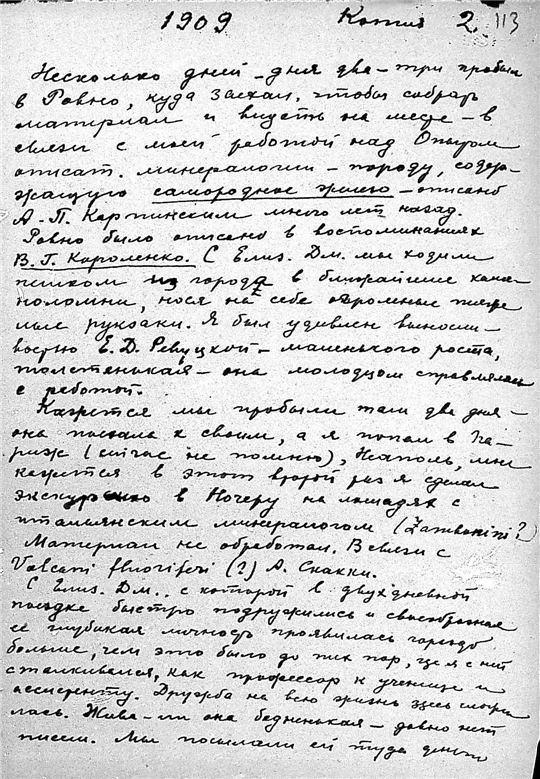 1909 Копия 2. 113
Несколько дней – дня два – три пробыл
в Ровно, куда заехал, чтобы собрать
материал и видеть на месте – в
связи с моей работой над Опытом
описат. минералогии – породу, содер-
жащую самородное железо – описано
А. П. Карпинским много лет назад.
Ровно было описано в воспоминаниях
В. Г. Короленко. С Елиз. Дм. мы ходили
пешком из города в ближайшие каме-
ноломни, нося на себе огромные тяже
лые рукзаки. Я был удивлен выносли-
востью Е. Д. Ревуцкой – маленького роста,
толстенькая – она молодцом справлялась
с работой.
Кажется мы пробыли там два дня –
она поехала к своим, а я попал в Па-
риж (сейчас не помню), Неаполь, мне
кажется в этот второй раз я сделал
экскурсию в Ночеру на лошадях с
итальянским минералогом (Zambonini?)
Материал не обработал. В связи с
Vulcani fluoriferi (?) А. Скакки.
С Елиз. Дм., с которой в двухдневной
поездке быстро подружились и своеобразная
её глубокая личность проявилась гораздо
больше, чем это было до тех пор, где я с ней
сталкивался, как профессор к ученице и
ассистенту. Дружба на всю жизнь здесь
лась. Жива – ли она бедненькая – давно нет
писем. Мы посылали ей туда деньги